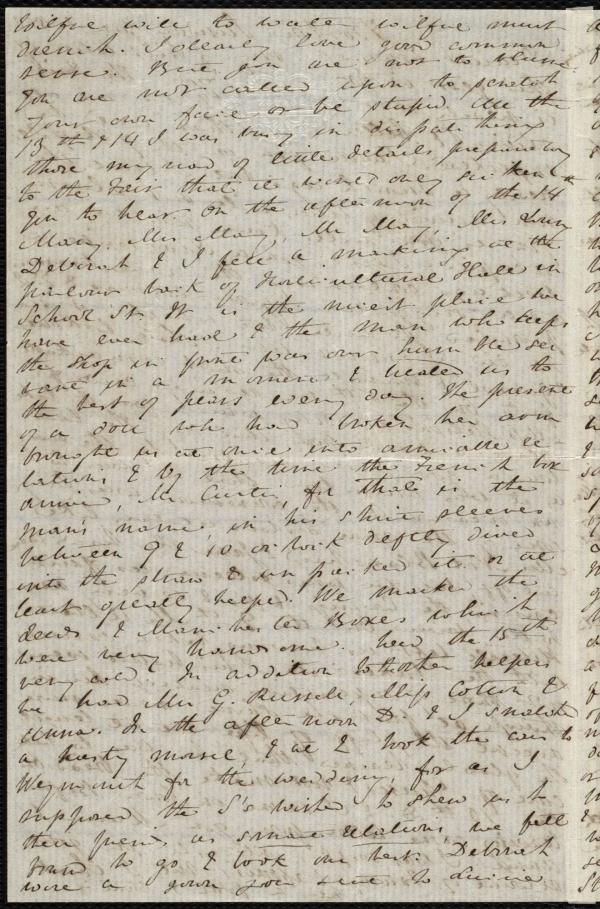 wilful will to water wilful must
drench. I clearly love good common
sense. But you are not to blame.
You are not called upon to scratch
your own face or be stupid. All the
13th & 14 I was busy in dispatching
those myriad of little details preparatory
to the Fair that it would only sicken
you to hear. On the afternoon of the 14
Mary, Mrs May, Mr May, Miss
Deborah & I fell a marking at the
parlour back of Horticultural Hall in
School St. It is the nicest place we
have ever had & the man who keeps
the shop in front was our humble ser
vant in a moment & treated us to
the best of pears every day. The present
of a doll who had broken her arm
brought us at once into amicable re-
lations & by the time the French box
arrived, Mr Curtis, for that is the
man's name, in his shirt sleeves
between 9 & 10 o'clock deftly dived
into the straw & unpacked it or at
least greatly helped. We marked the
Leeds & Manchester Boxes which
were very handsome. Wed the 15th
very cold. In addition to other helpers
we had Mr G. Russell, Miss Cotton &
Anna. In the afternoon D. & I snatched
a hasty morsel, & at 2 took the cars to
Weymouth for the wedding, for as I
supposed the S's wished to shew us to
their friends as smart relations, we felt
bound to go & look our best. Deborah
wore a gown you sent to Louisa